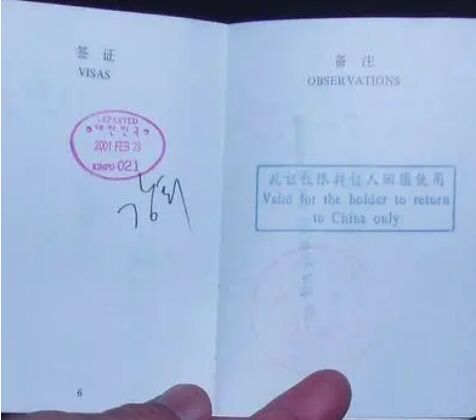 签证
VISAS
DEPARTED
대한민국
2001 FEB 23
KIMPO 021
6
备注
OBSERVATIONS
此证仅限持证人回国使用
Valid for the holder to return
to China only